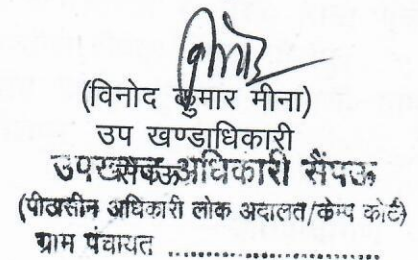 (विनोद कुमार मीना)
उप खण्डाधिकारी
उपखण्ड अधिकारी सैंपऊ
सैंपऊ
(पीठासीन अधिकारी लोक अदालत/केम्प कोर्ट)
ग्राम पंचायत ....................